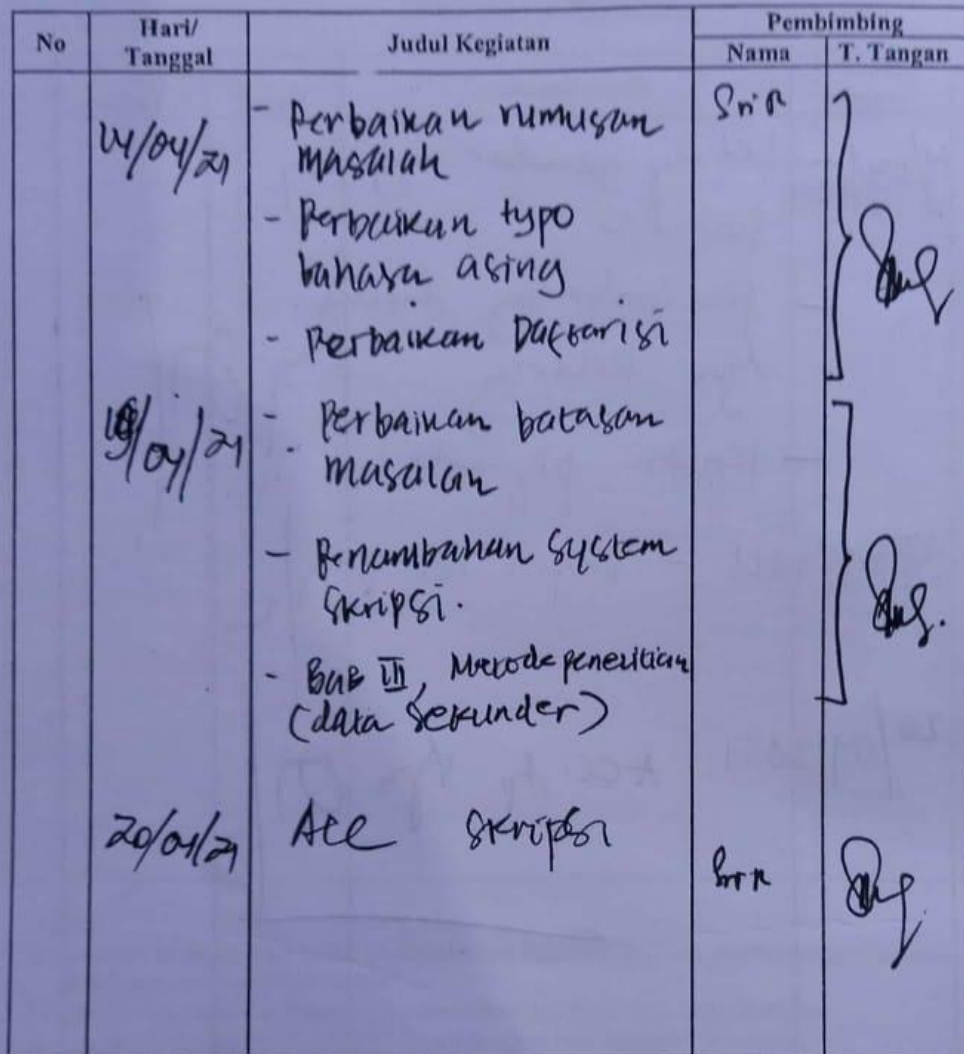 No Hari/ Tanggal Judul Kegiatan Pembimbing
Nama T. Tangan
14/04/21 - Perbaikan rumusan Sri R
masalah
- Perbaikan typo
bahasa asing
- Perbaikan Daftar isi
/04/21 - Perbaikan batasan
masalah
- Penambahan system
skripsi.
- BAB III, Metode penelitian
(data sekunder)
20/04/21 Acc skripsi Sri R